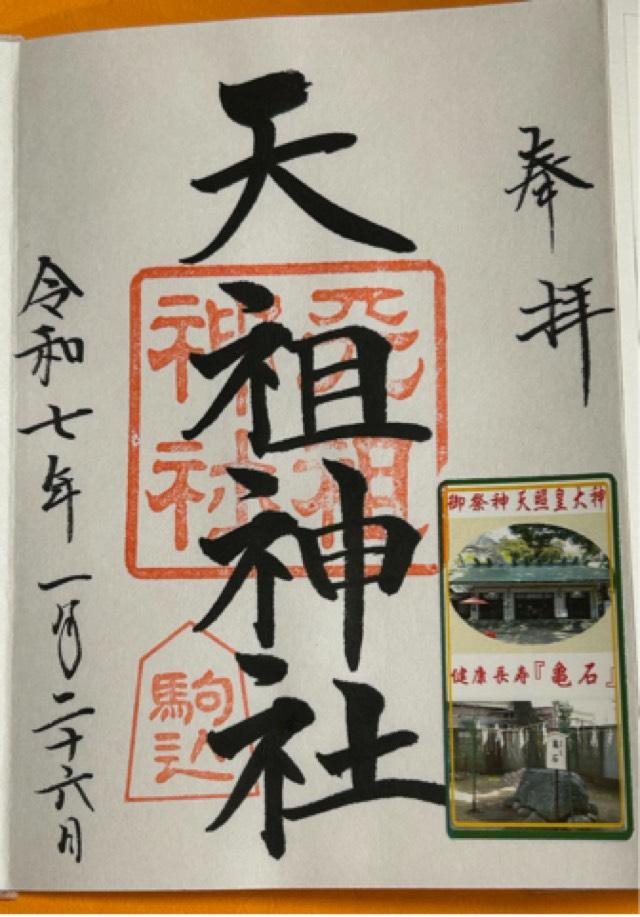 奉拝
天祖神社
天祖
神社
駒込
令和七年一月二十六日
御祭神天照皇大神
健康長寿『亀石』
亀石